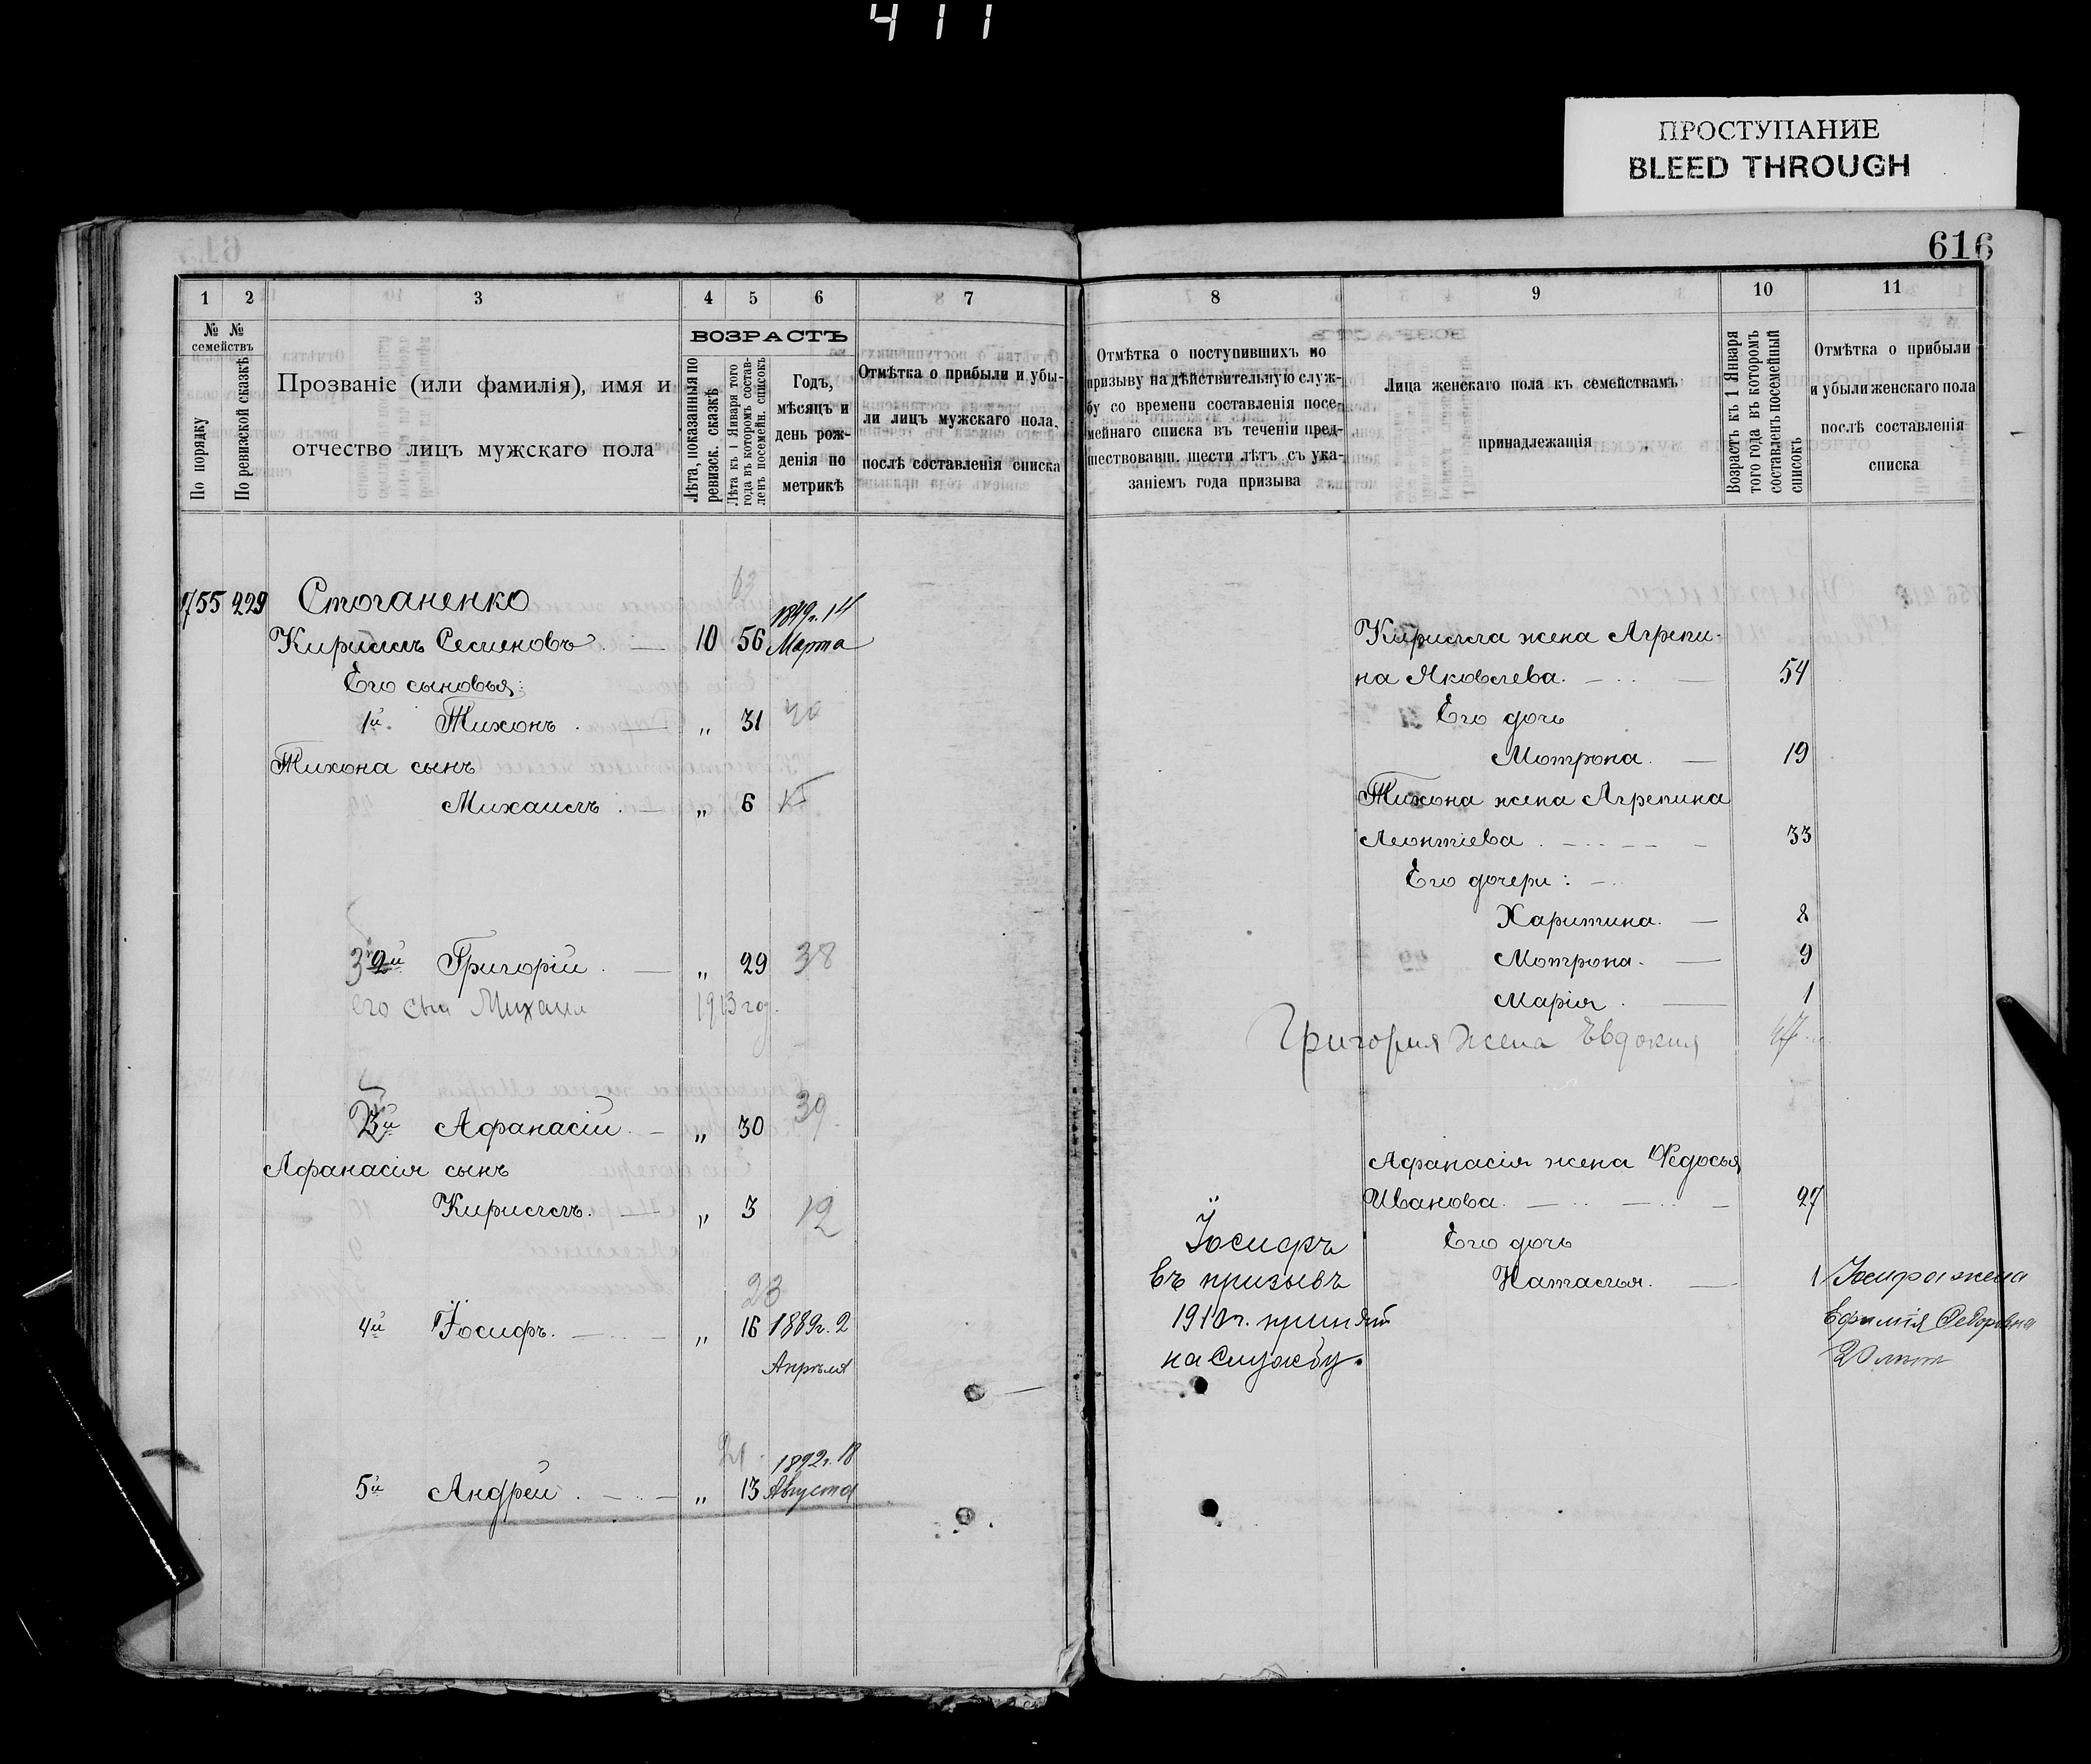 411
ПРОСТУПАНИЕ
BLEED THROUGH
616
1 2 3 4 5 6 7
№ № семействъ
По порядку
По ревизской сказкѣ
Прозваніе (или фамилія), имя и
отчество лицъ мужскаго пола
ВОЗРАСТЪ
Лѣта, показанныя по
ревизск. сказкѣ
Лѣта къ 1 Января того
года въ которомъ состав-
ленъ посемейн. списокъ
Годъ,
мѣсяцъ и
день рож-
денія по
метрикѣ
Отмѣтка о прибыли и убы-
ли лицъ мужскаго пола,
послѣ составленія списка
755 229 Стоганенко 63
Кириллъ Семеновъ. 10 56 1849г. 14 Марта
Его сыновья:
1й. Тихонъ. „ 31 40
Тихона сынъ
Михаилъ. „ 6 15
3 2й Григорій. „ 29 38
его сын Михаил 1913 год.
2 3й Афанасій. „ 30 39
Афанасія сынъ
Кириллъ. „ 3 12
23
4й Іосифъ. „ 16 1889г. 2
Апрѣля
21
5й Андрей. „ 13 1892г. 18 Августа
8 9 10 11
Отмѣтка о поступившихъ по
призыву на дѣйствительную служ-
бу со времени составленія посе-
мейнаго списка въ теченіи пред-
шествовавш. шести лѣтъ съ ука-
заніемъ года призыва
Лица женскаго пола къ семействамъ
принадлежащія
Возрастъ къ 1 Января
того года въ которомъ
составленъ посемейный
списокъ
Отмѣтка о прибыли
и убыли женскаго пола
послѣ составленія
списка
Кирилла жена Агрепи-
на Яковлева. 54
Его дочь
Мотрона. 19
Тихона жена Агрепина
Леонтіева. 33
Его дочери:
Харитина. 8
Мотрона. 9
Марія. 1
Григория жена Евдокия
Афанасія жена Федосья
Иванова. 27
Его дочь
Наталья. 1
Іосифъ
въ призывъ
1910г. принят
на службу.
Іосифа жена
Ефимія Федоровна
20 лѣт